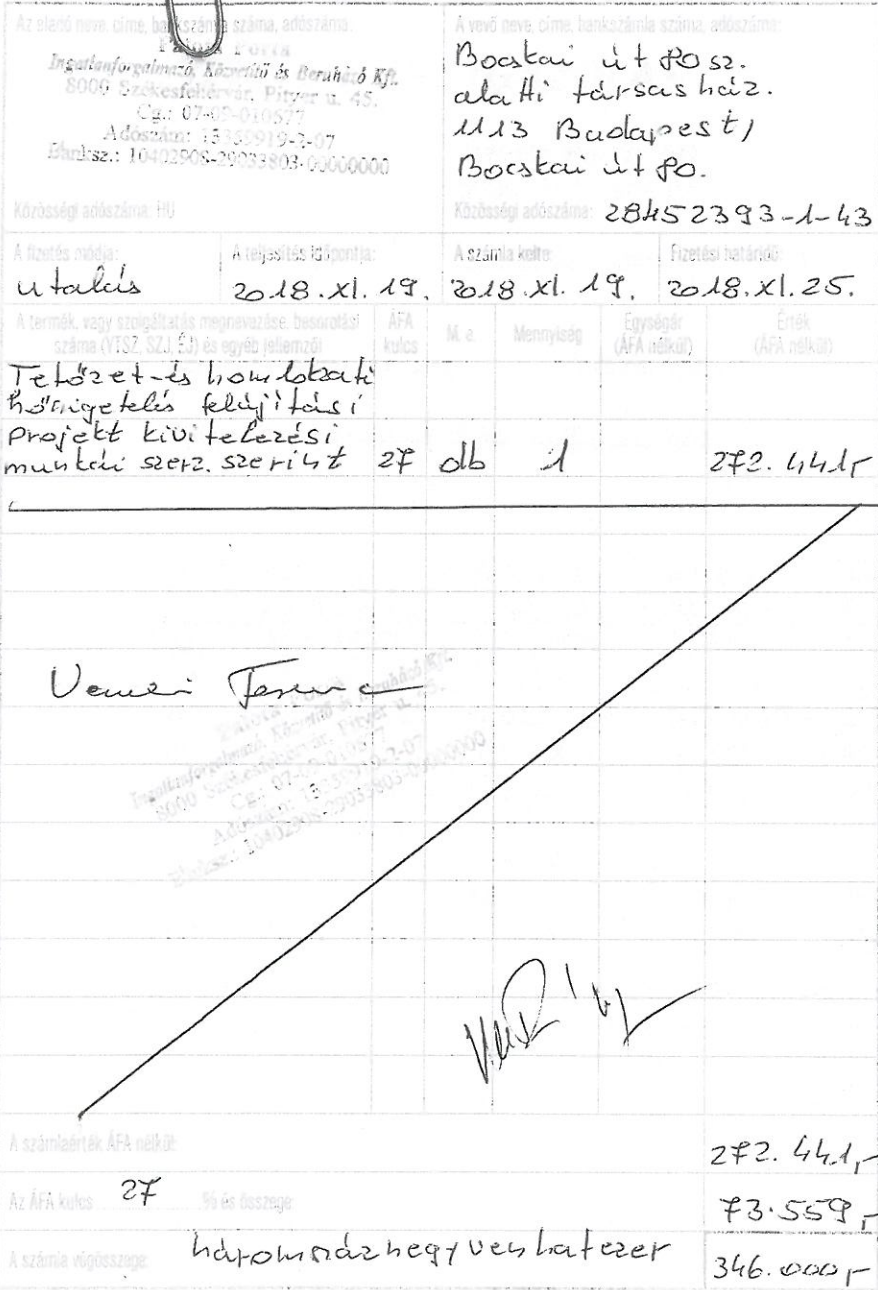 Az eladó neve, címe, bankszámla száma, adószáma:
Porta
Ingatlanforgalmazó, Közvetítő és Beruházó Kft.
8000 Székesfehérvár, Pityer u. 45.
Cg.: 07-09-010577
Adószám: 13359919-2-07
Banksz.: 10402908-29033803-00000000
Közösségi adószáma: HU
A vevő neve, címe, bankszámla száma, adószáma:
Bocskai út 70 sz.
alatti társasház.
1113 Budapest,
Bocskai út 70.
Közösségi adószáma: 28452393-1-43
A fizetés módja: A teljesítés időpontja: A számla kelte: Fizetési határidő:
utalás 2018.XI.19. 2018.XI.19. 2018.XI.25.
A termék, vagy szolgáltatás megnevezése, besorolási száma (VTSZ, SZJ, ÉJ) és egyéb jellemzői ÁFA kulcs M. e. Mennyiség Egységár (ÁFA nélkül) Érték (ÁFA nélkül)
Tetőzet-és homlokzati
hőszigetelés felújítási
projekt kivitelezési
munkái szerz. szerint 27 db 1 272.441,-
Ferenc
Ingatlanforgalmazó, Közvetítő és Beruházó Kft.
8000 Székesfehérvár, Pityer u. 45.
Cg.: 07-09-010577
Adószám: 13359919-2-07
Banksz.: 10402908-29033803-00000000
A számlaérték ÁFA nélkül: 272.441,-
Az ÁFA kulcs 27 % és összege 73.559,-
A számla végösszege: háromszáznegyvenhatezer 346.000,-